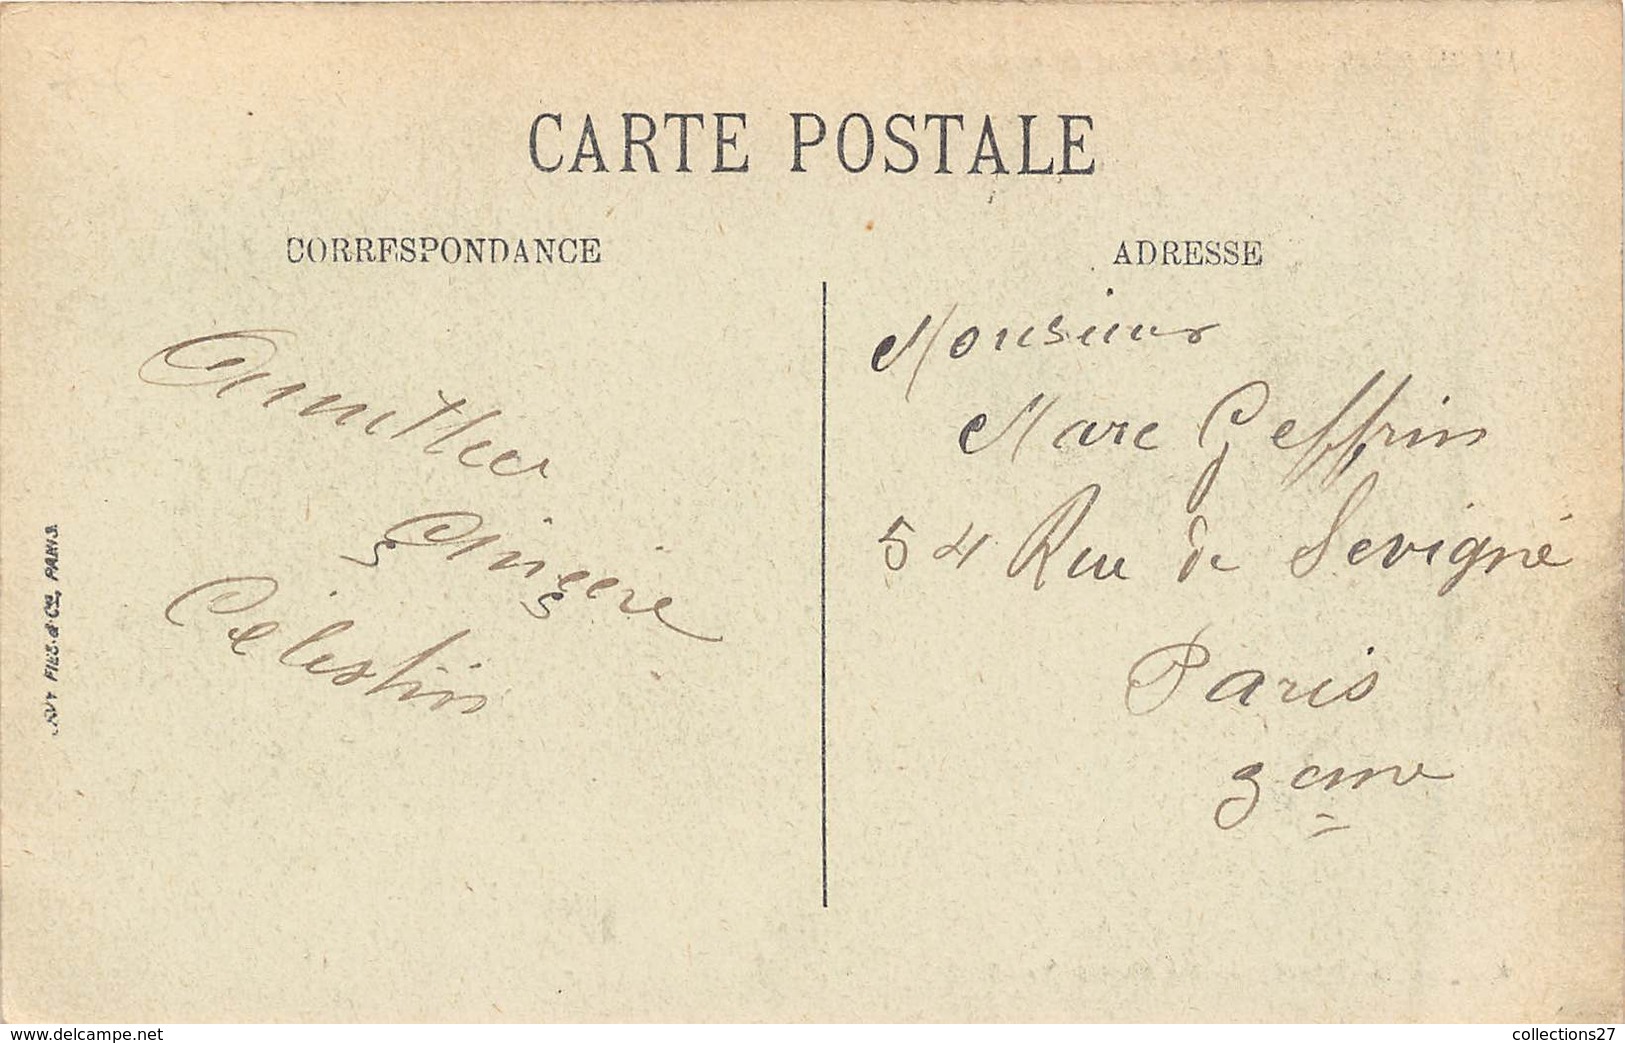 CARTE POSTALE
CORRESPONDANCE
ADRESSE
Amitier
Cincère
Célestin
Monsieur
Marc Geffrin
54 Rue de Sevigné
Paris
3eme
FILS & Cie, PARIS
www.delcampe.net
collections27